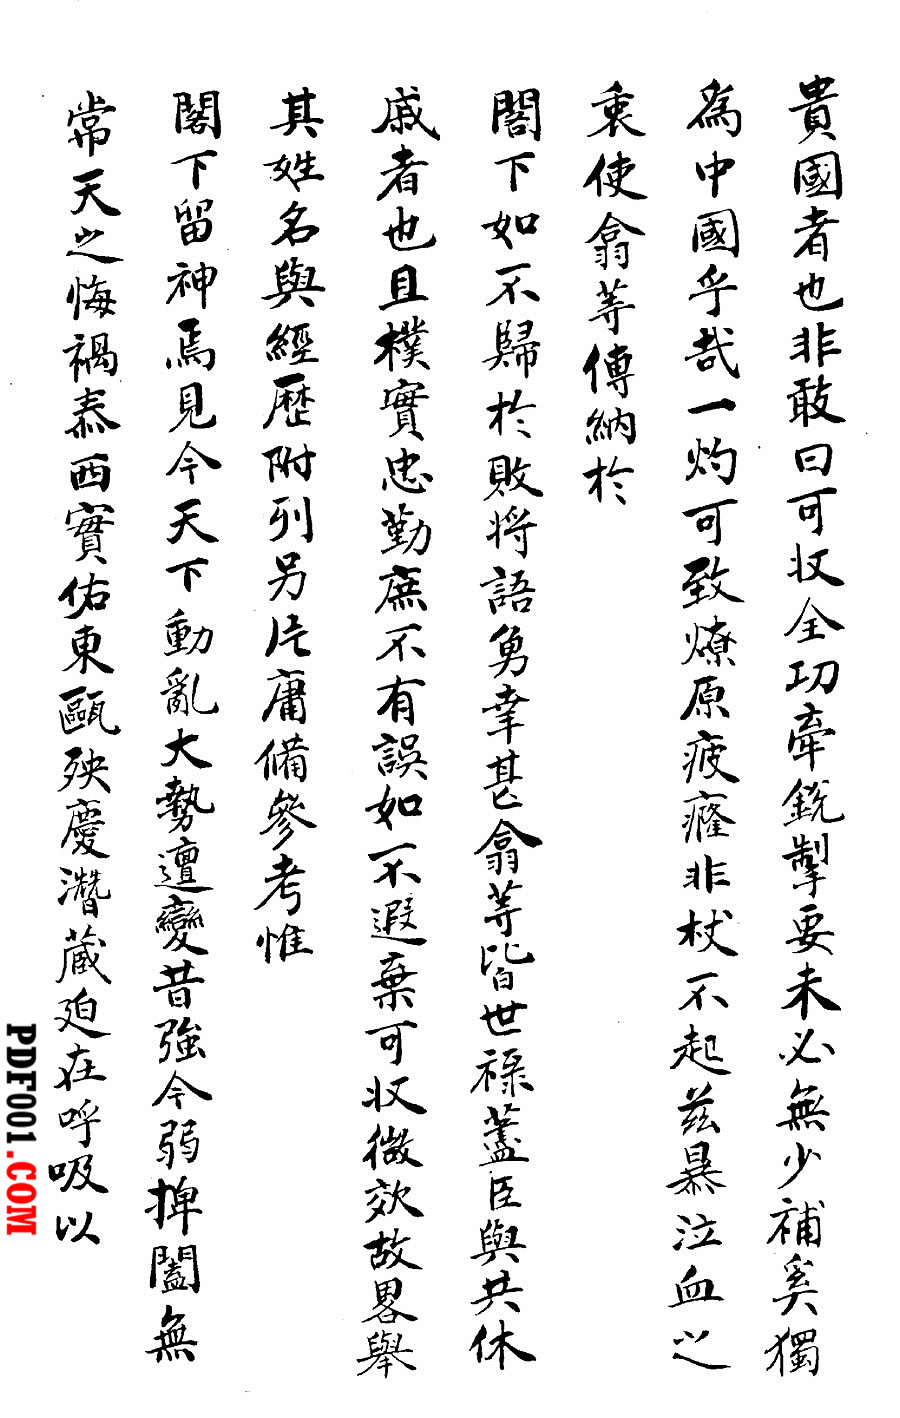 貴國者也非敢曰可收全功牽銳掣要未必無少補奚獨
為中國乎哉一灼可致燎原疲癃非杖不起茲暴泣血之
衷使翕等傅納於
閣下如不歸於敗將語勇幸甚翕等皆世祿藎臣與共休
戚者也且樸實忠勤庶不有誤如不遐棄可收微效故畧舉
其姓名與經歷附列另片庸備參考惟
閣下留神焉見今天下動亂大勢邅變昔強今弱捭闔無
常天之悔禍泰西實佑東甌殃慶潛藏廹在呼吸以
PDF001.COM